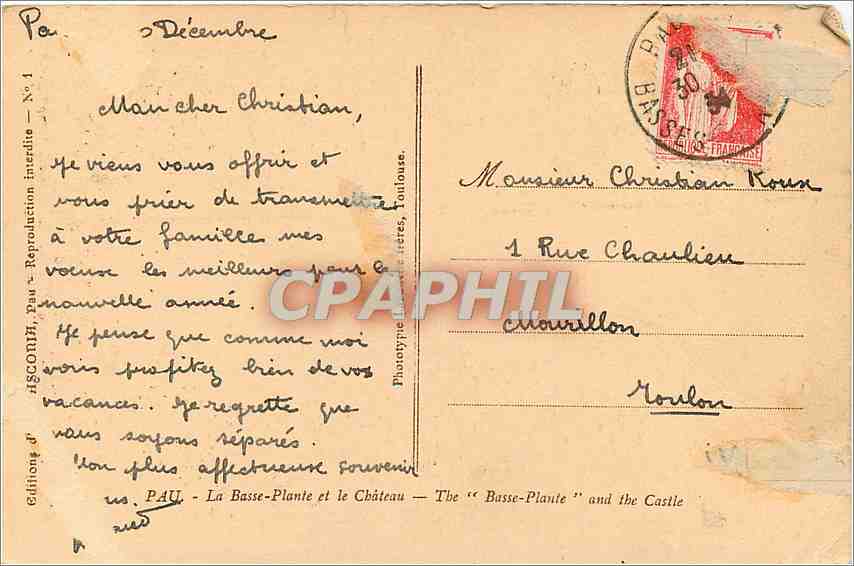 Décembre
Mon cher Christian,
Je viens vous offrir et
vous prier de transmettre
à votre famille mes
voeux les meilleurs pour la
nouvelle année.
Je pense que comme moi
vous profitez bien de vos
vacances. Je regrette que
nous soyons séparés.
plus affectueux souvenir
Monsieur Christian Roux
1 Rue Chaulieu
Mourillon
Toulon
21
30
BASSES
FRANÇAISE
CPAPHIL
PAU. - La Basse-Plante et le Château — The “ Basse-Plante ” and the Castle
Editions d' ASCONIA, Pau - Reproduction interdite — N° 1
Phototypie Frères, Toulouse.